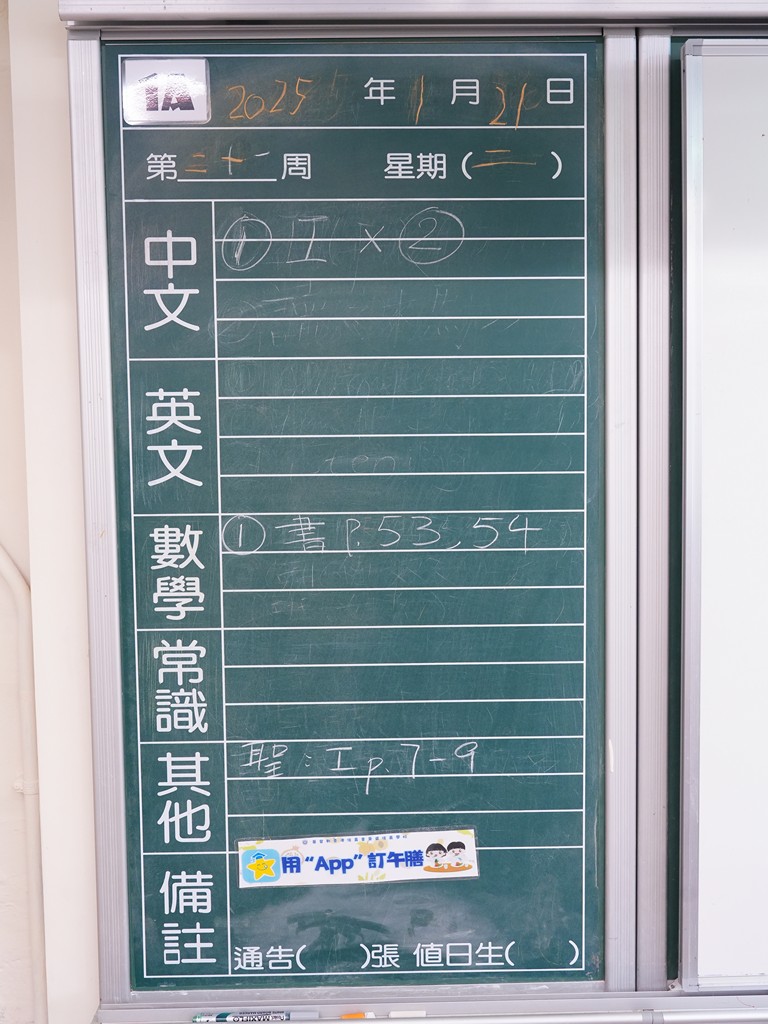 2025年1月21日
第二十一周 星期(二)
中文
① 工 × ②
英文
數學
① 書 p.53, 54
常識
其他
聖:工 p.7-9
用“App”訂午膳
備註
通告( )張 值日生( )